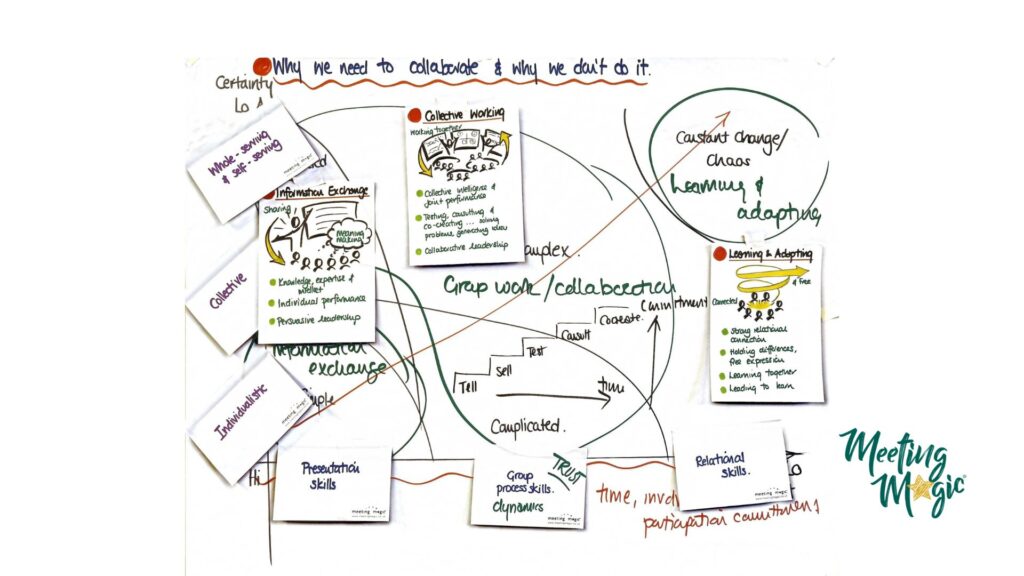 Why we need to collaborate & why we don't do it.
Certainty
Lo
Whole-serving
& self-serving
meeting magic
Collective Working
Working together
Collective intelligence &
joint performance
Testing, consulting &
co-creating ... solving
problems, generating ideas
Collaborative leadership
Constant change/
chaos
Learning &
adapting
Information Exchange
Sharing
Meaning
making
Knowledge, expertise &
mindset
Individual performance
Persuasive leadership
Collective
Information
exchange
Simple
Individualistic
meeting magic
Complex.
Group work/collaboration
Commitment
Cocreate.
Consult
Test
Sell
Tell
time
Complicated.
Learning & Adapting
& Free
Connected
Strong relational
connection
Holding differences,
free expression
Learning together
Leading to learn
Hi
Presentation
skills
meeting magic
TRUST
Group
process skills.
dynamics
meeting magic
Relational
skills.
meeting magic
Lo
time, invo
participation commitment
Meeting
Magic